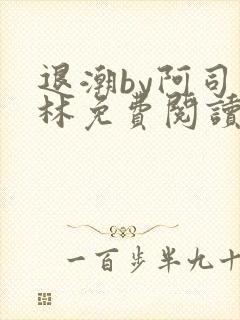 退潮by阿司
林免費閱讀
一百步半九十